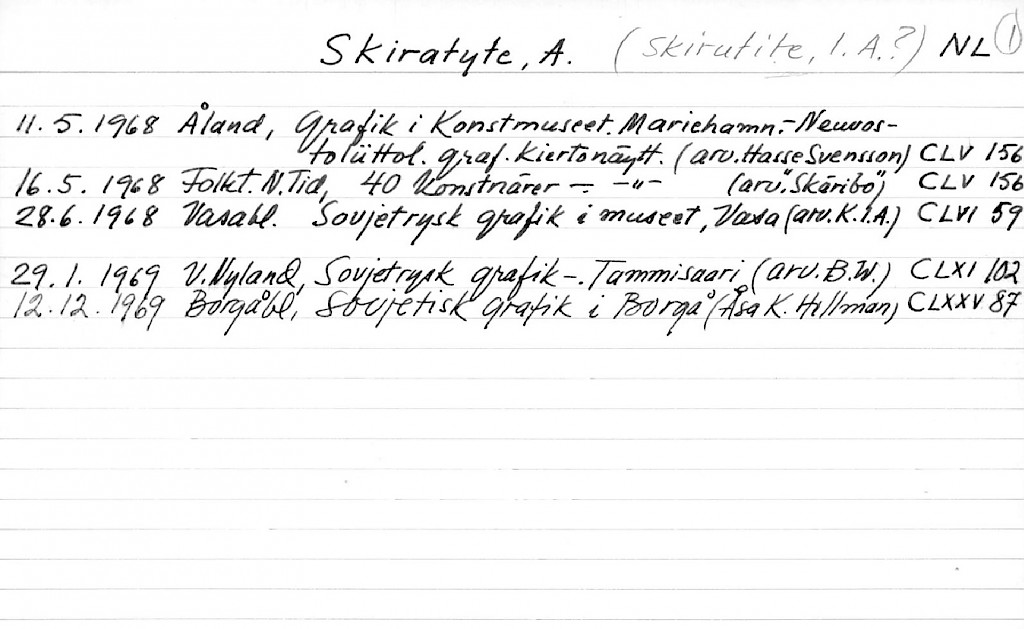 Skiratyte, A. (Skirutite, I. A.?) NL 1
11. 5. 1968 Åland, Grafik i Konstmuseet. Mariehamn.- Neuvos-
toliittol. graf. Kiertonäytt. (arv. Hasse Svensson) CLV 156
16. 5. 1968 Folkt. N. Tid, 40 Konstnärer — -"- (arv. "Skäribo") CLV 156
28. 6. 1968 Vasabl. Sovjetrysk grafik i museet, Vasa (arv. K. I. A.) CLVI 59
29. 1. 1969 V. Nyland, Sovjetrysk grafik -. Tammisaari (arv. B. W.) CLXI 102
12. 12. 1969 Borgåbl, Sovjetisk grafik i Borgå (Åsa K. Hillman) CLXXV 87